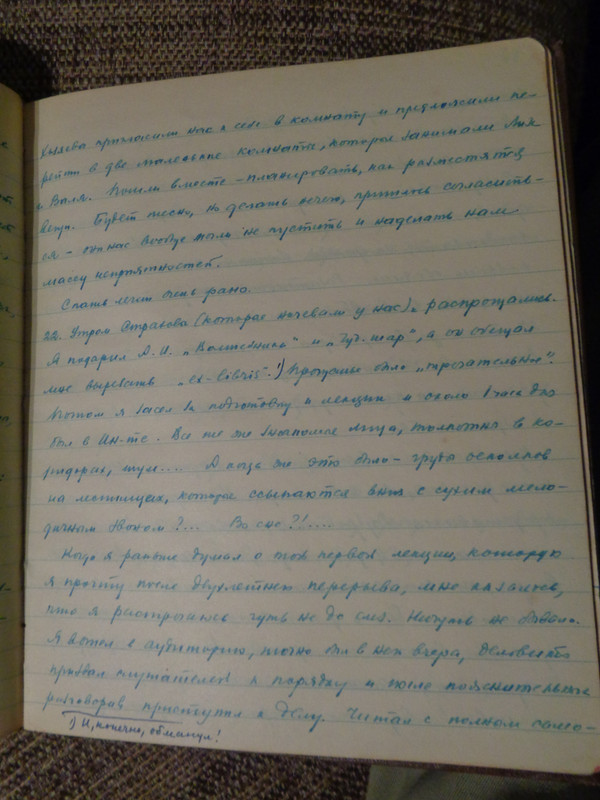 пригласили нас к себе в комнату и предложили пе-
рейти в две маленькие комнаты, которые занимали
и Валя. Пошли вместе – планировать, как разместятся
вещи. Будет тесно, но делать нечего, пришлось согласить-
ся – они нас вообще могли не пустить и наделать нам
массу неприятностей.
Спать легли очень рано.
22. Утром Страхова (которые ночевали у нас) распрощались.
Я подарил А.И. „Волшебника“ и „Чуд. шар“, а он обещал
мне вырезать „ex-libris“.¹) Прощание было „трогательное“.
Потом я засел за подготовку к лекции и около 1 часа дня
был в Ин-те. Все те же знакомые лица, толкотня в ко-
ридорах, шум.... А когда же это было – груда осколков
на лестницах, которые ссыпаются вниз с сухим мело-
дичным звоном?... Во сне?!....
Когда я раньше думал о той первой лекции, которую
я прочту после двухлетнего перерыва, мне казалось,
что я расстроюсь чуть не до слез. Ничуть не бывало.
Я вошел в аудиторию, точно был в ней вчера, деловито
призвал слушателей к порядку и после пояснительных
разговоров приступил к делу. Читал с полным само-
¹) И, конечно, обманул!